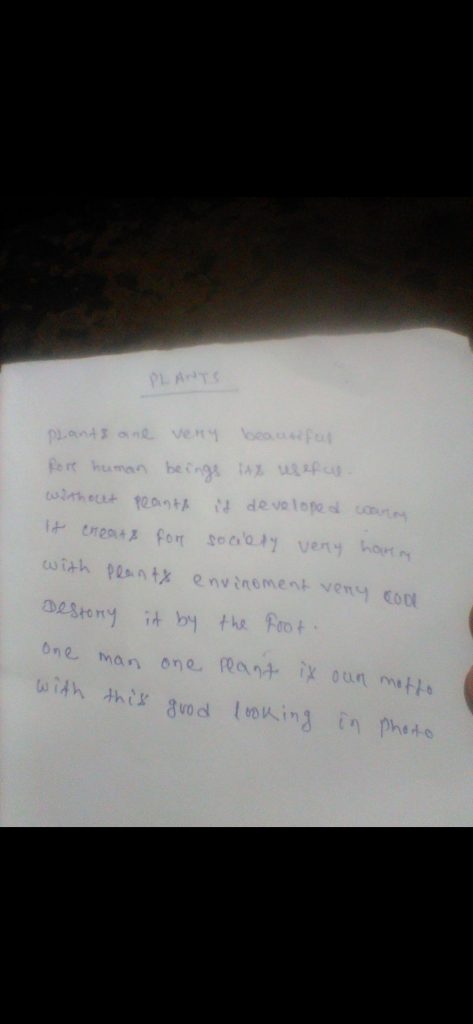 PLANTS
Plants are very beautiful
For human beings its useful.
without plants it developed warm
It creats for society very harm
with plants enviroment very cool
Destory it by the foot.
One man one plant is our motto
with this good looking in photo